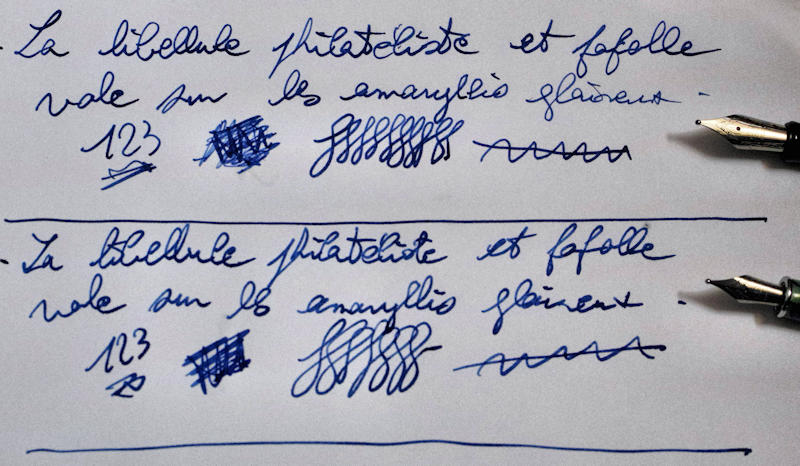 - La libellule philatéliste et fofolle
vole sur les amaryllis glaireux -
123
- La libellule philatéliste et fofolle
vole sur les amaryllis glaireux -
123